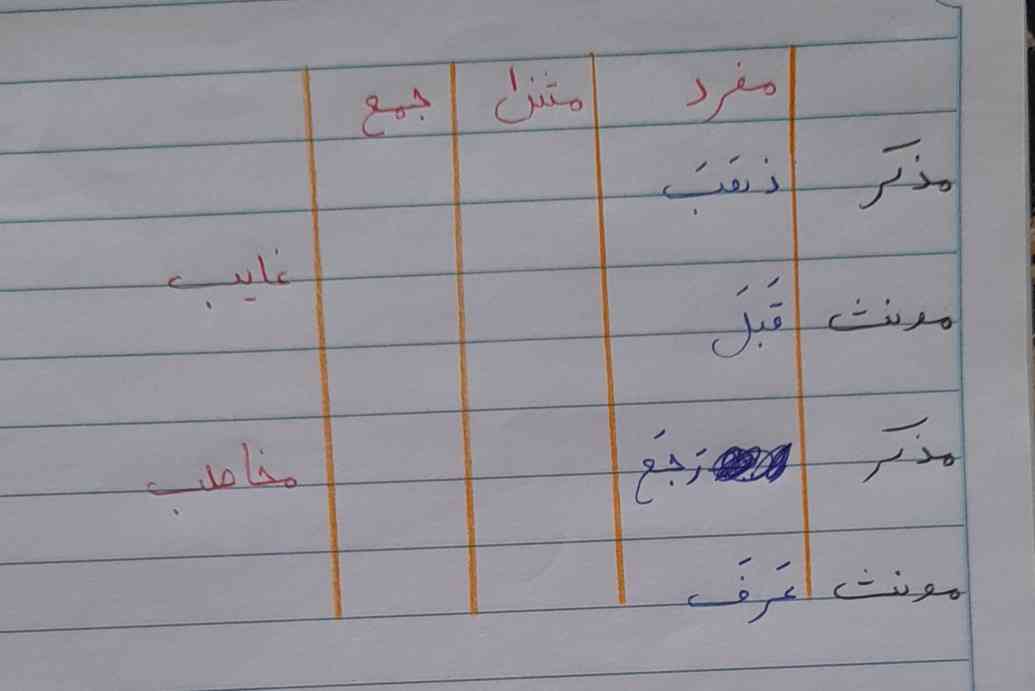 مفرد مثنا جمع
مذکر ذهَبَ
غایب
مونث قَبَلَ
مذکر رَجَعَ مخاطب
مونث عَرَفَ